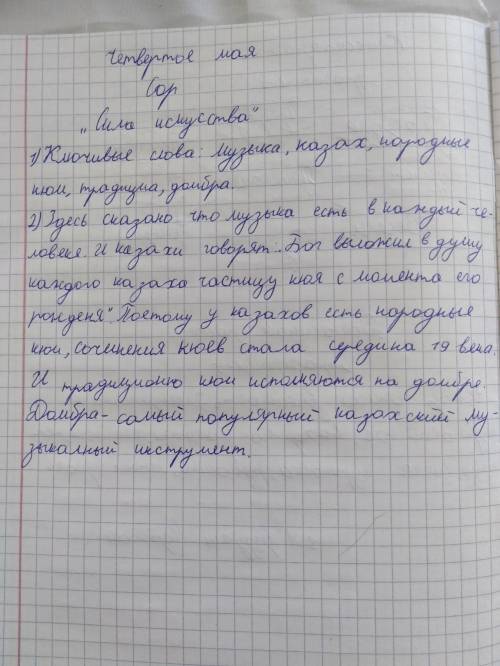 Четвертое мая
Сор
„Сила искусства"
1) Ключивые слова: Музыка, казах, народные
кюи, традициа, домбра.
2) Здесь сказано что музыка есть в каждый че-
ловеке. И казахи говорят: „Бог выложил в душу
каждого казаха частицу кюя с момента его
рожденя". Поэтому у казахов есть народные
кюи, сочинения кюев стала середина 19 века.
И традиционю кюи исполняются на домбре.
Домбра - самый популярный казахский му-
зыкалный инструмент.